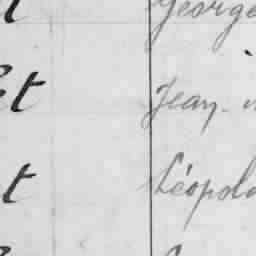 t George
t Jean
t Léopold